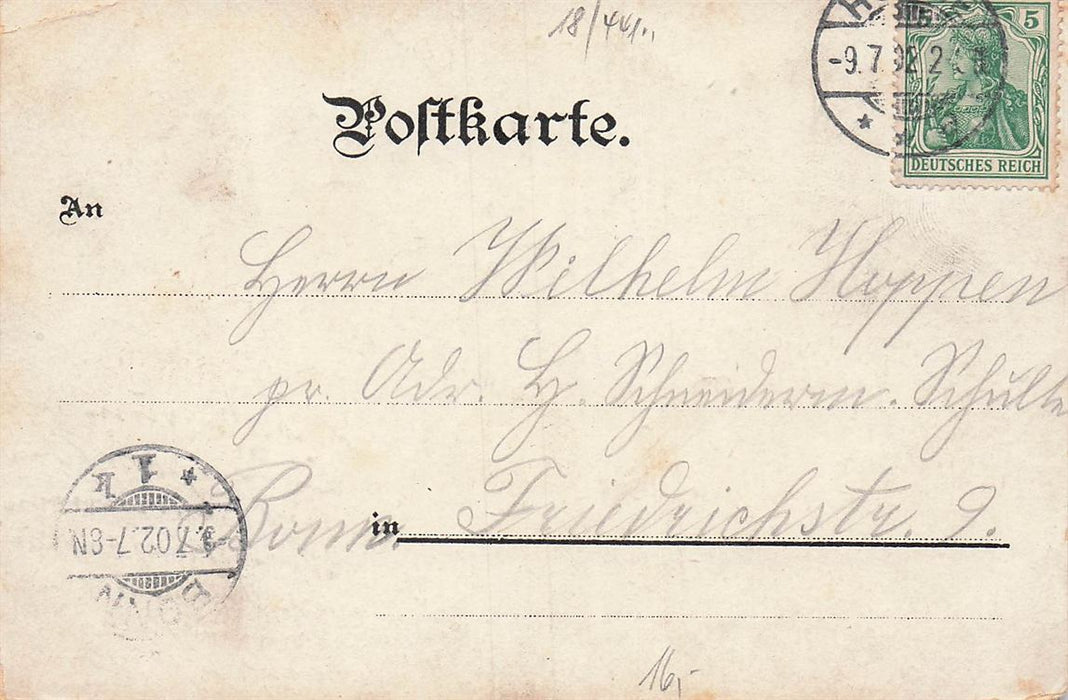 18/441..
5
-9.7.02.2
DEUTSCHES REICH
Postkarte.
An
Herrn Wilhelm Hoppen
pr. Adr. H. Schneiderm. Schulte
Bonn. in Friedrichstr. 9.
1 k
9.7.02.7-8N
BONN
16,-